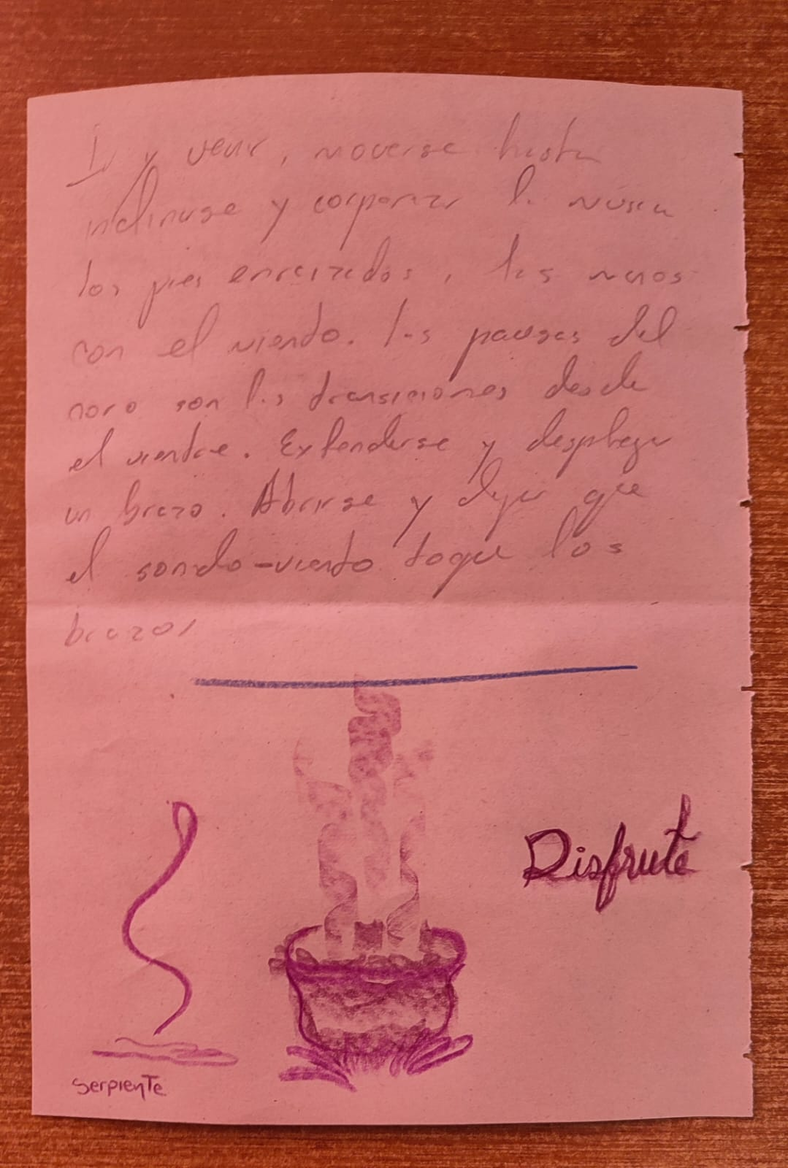 Ir y venir, moverse hasta
inclinarse y corporizar la música
los pies enraizados, las manos
con el viento. Las pausas del
coro son las transiciones desde
el vientre. Extenderse y desplegar
un brazo. Abrirse y dejar que
el sonido-viento toque los
brazos
Disfrute
Serpiente